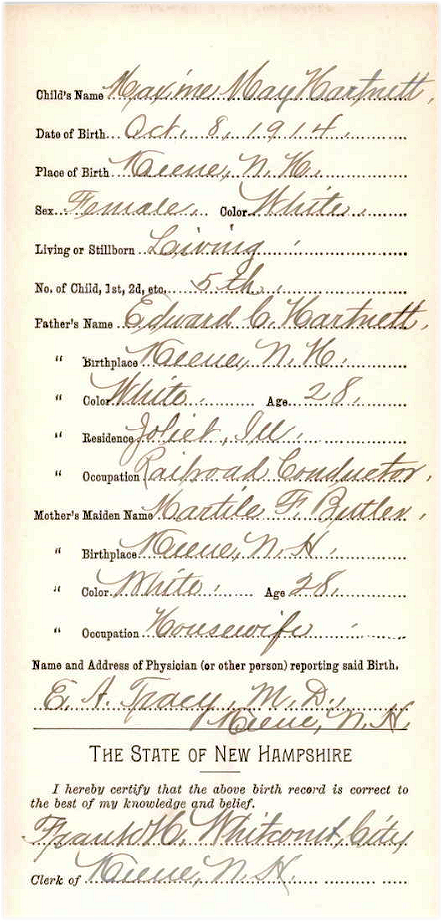 Child's Name Maxine May Hartnett.
Date of Birth Oct. 8, 1914.
Place of Birth Keene, N. H.
Sex Female. Color White.
Living or Stillborn Living
No. of Child, 1st, 2d, etc. 5th.
Father's Name Edward C. Hartnett.
" Birthplace Keene, N. H.
" Color White. Age 28.
" Residence Joliet, Ill.
" Occupation Railroad Conductor.
Mother's Maiden Name F. Butler.
" Birthplace Keene, N. H.
" Color White. Age 28.
" Occupation Housewife
Name and Address of Physician (or other person) reporting said Birth.
E. A. Tracy, M. D.,
Keene, N. H.
THE STATE OF NEW HAMPSHIRE
I hereby certify that the above birth record is correct to
the best of my knowledge and belief.
Frank H. Whitcomb, City
Clerk of Keene, N. H.